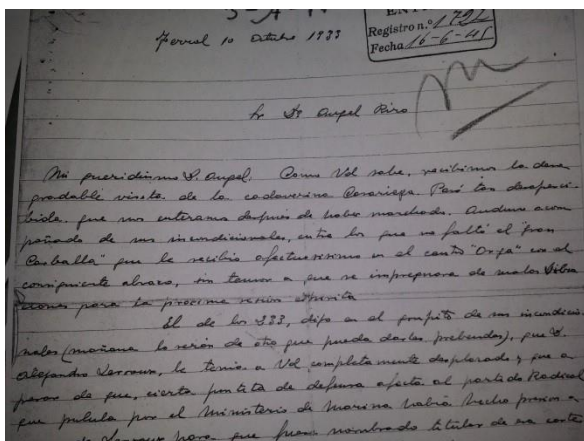 S-A-N
Registro n.º 1792
Fecha 16-6-45
Ferrol 10 Octubre 1933
Sr Dn Angel Rizo
Mi queridísimo D. Angel. Como Vd sabe, recibimos la desa
gradable visita de la cadaverina Casariego. Pasó tan desaperci-
bida, que nos enteramos después de haber marchado. Anduvo acom
pañado de sus incondicionales, entre los que no faltó el "gran
Carballa" que le recibió afectuosísimo en el cantó "Orga" con el
consiguiente abrazo, sin temor a que se impregnara de malas vibra
ciones para la próxima sesión espirita
El de los 333, dijo en el grupito de sus incondicio
nales (mañana lo serán de otro que pueda darles prebendas), que D.
Alejandro Lerroux, le tenía a Vd completamente desplazado y que a
pesar de que, cierta puntita de defensa afecta al partido Radical
que pulula por el Ministerio de Marina había hecho presión a
Lerroux para que fuera nombrado titular de esa carte